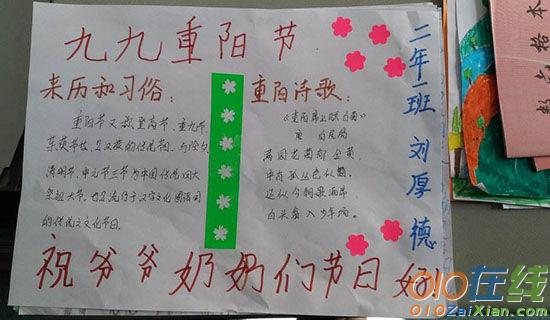 九九重阳节
来历和习俗：
重阳节又称登高节、重九节、
茱萸节等，是汉族的传统节日，与除夕、
清明节、中元节三节为中国传统四大
祭祖大节。也是流行于汉字文化圈诸国
的传统文化节日。
重阳诗歌：
《重阳席上赋白菊》
唐 白居易
满园花菊郁金黄，
中有孤丛色似霜。
还似今朝歌酒席，
白头翁入少年场。
二年一班 刘厚德
祝爷爷奶奶们节日好
格本
010在线
010ZaiXian.com